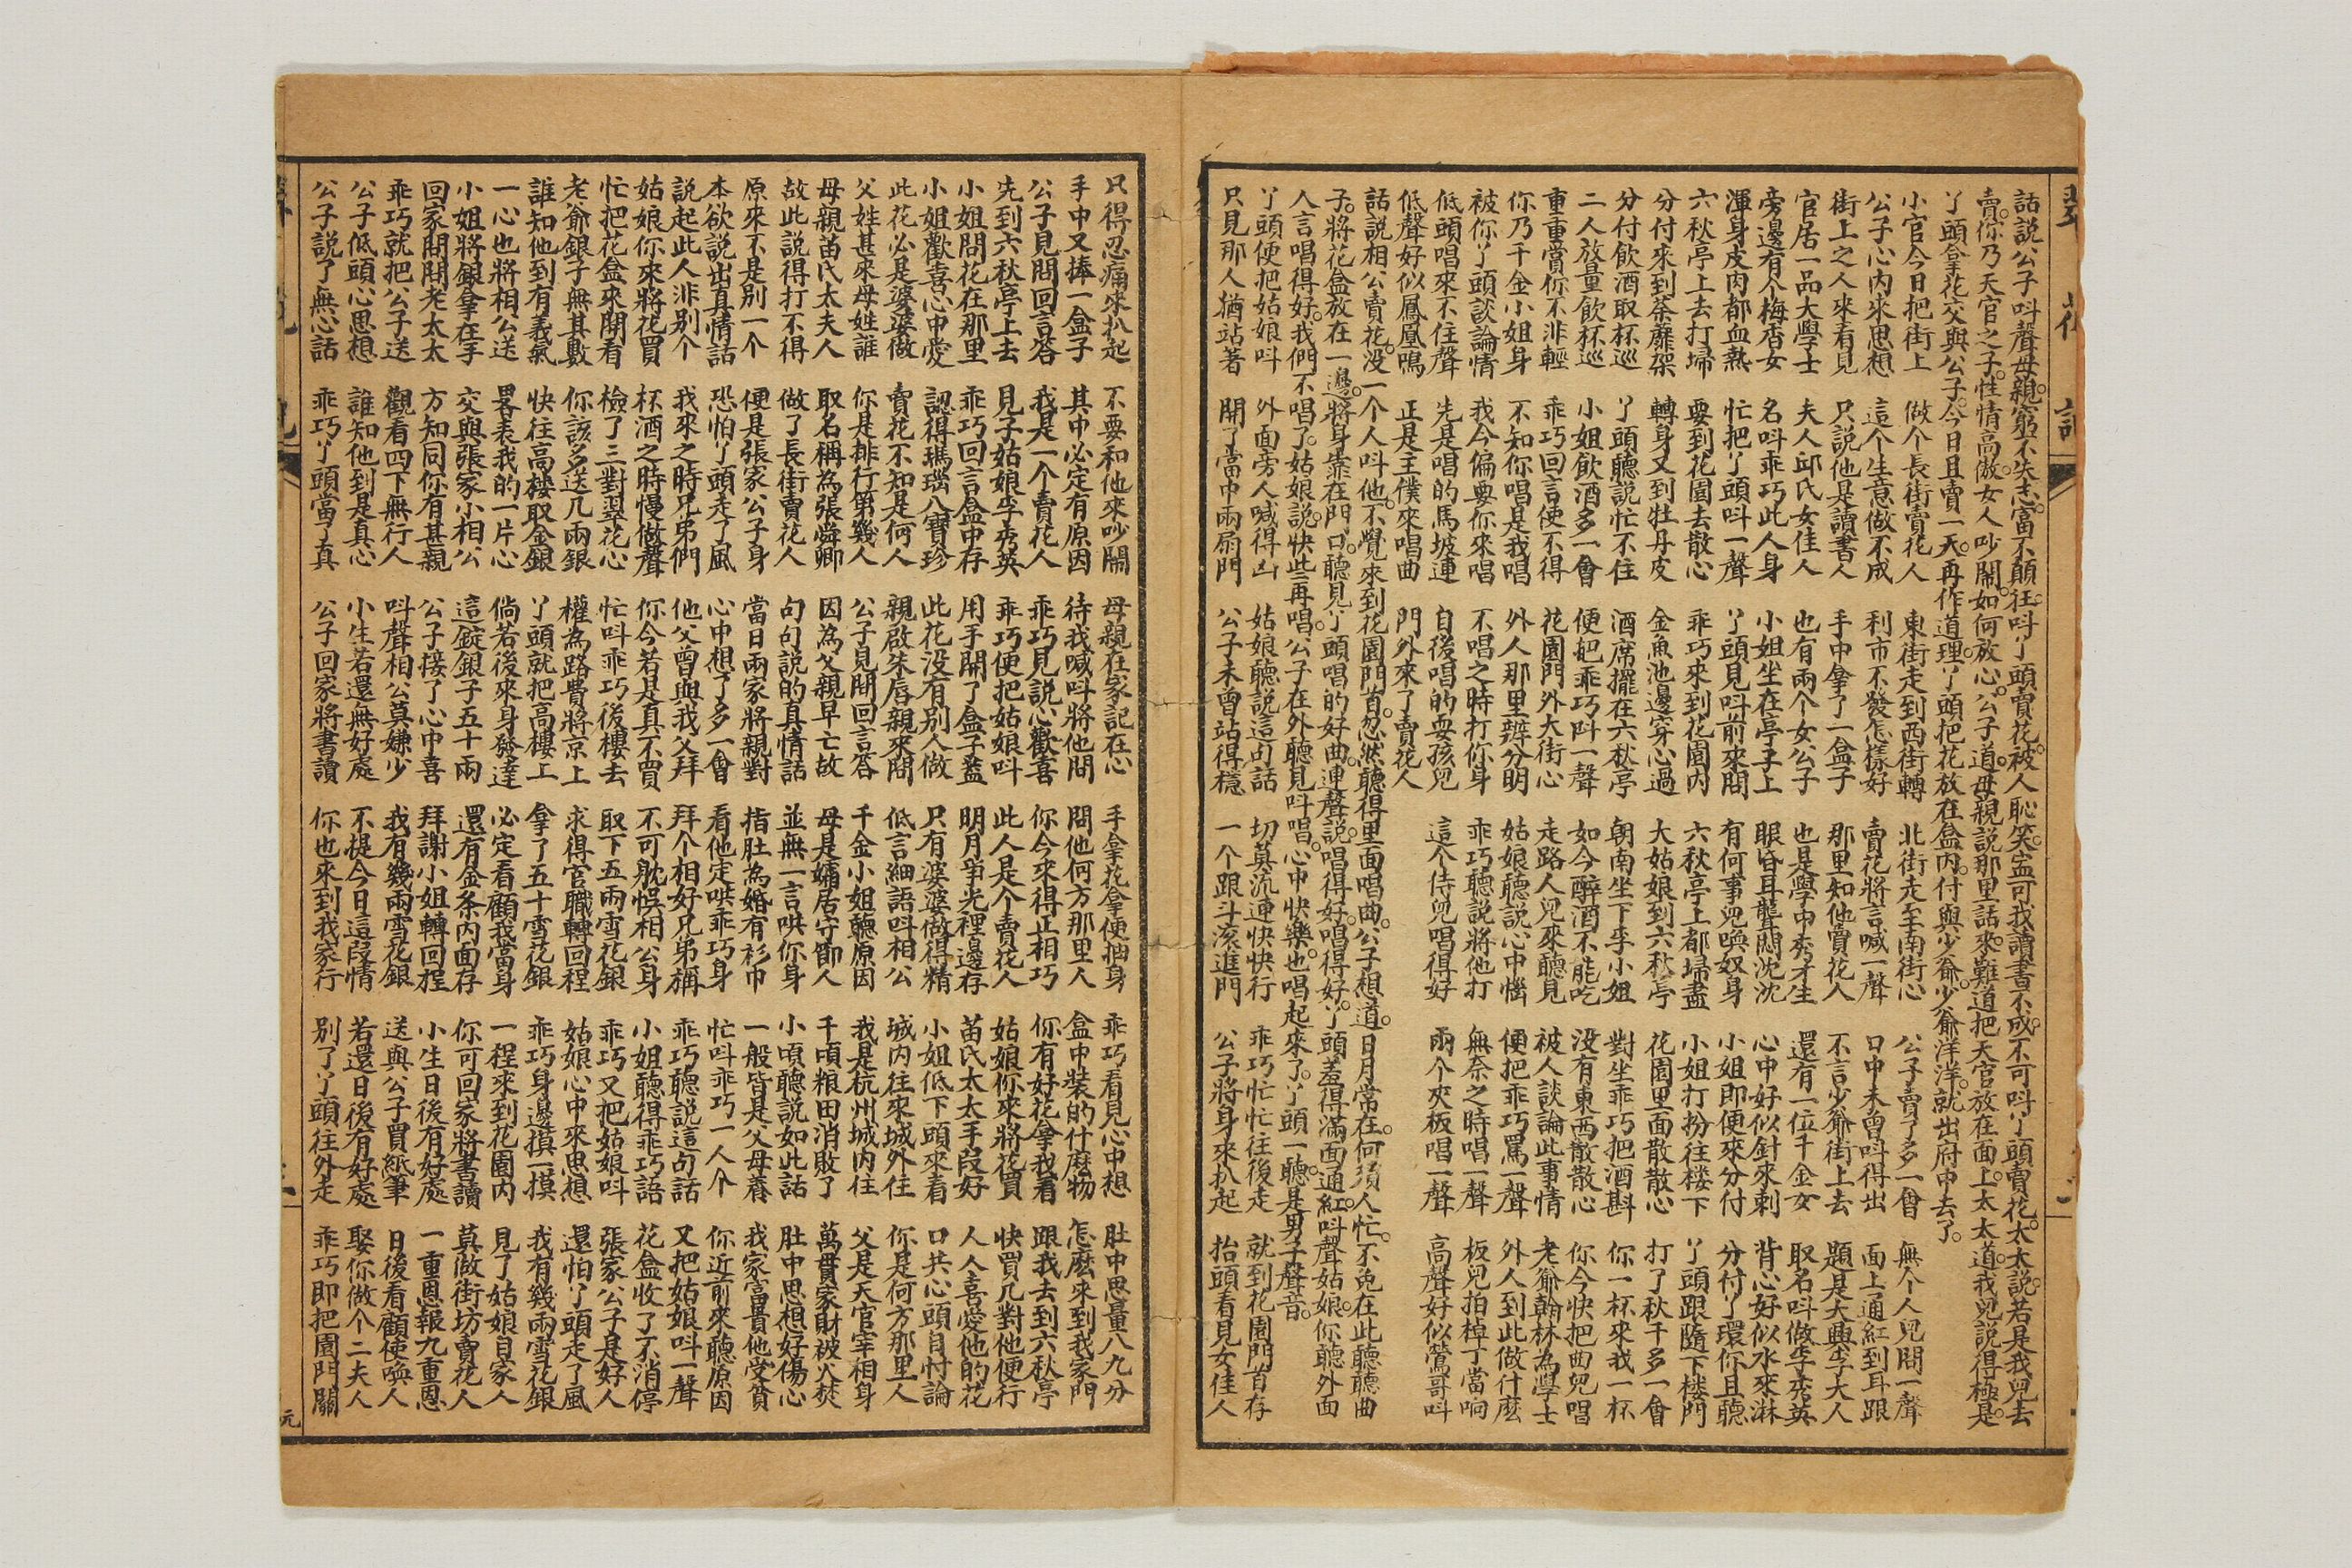 話說公子叫聲母親。窮不失志。富不顛狂。叫丫頭賣花。被人恥笑。盍可我讀書不成。不可叫丫頭賣花。太太說。若是我兒去
賣。你乃天官之子。性情高傲。女人吵鬧。如何放心。公子道。母親說那里話來。難道把天官放在面上。太太道我兒說得極是。
丫頭拿花交與公子。今日且賣一天。再作道理。丫頭把花放在盒內。付與少爺。少爺洋洋。就出府中去了。
小官今日把街上 做个長街賣花人 東街走到西街轉 北街走至南街心 公子賣了多一會 無个人兒問一聲
公子心內來思想 這个生意做不成 利市不發怎樣好 賣花將言喊一聲 口中未曾叫得出 面上通紅到耳跟
街上之人來看見 只說他是讀書人 手中拿了一盒子 那里知他賣花人 不言少爺街上去 題是大興李大人
官居一品大學士 夫人邱氏女佳人 也有兩个女公子 也是學中秀才生 還有一位千金女 取名叫做李秀英
旁邊有个梅香女 名叫乖巧此人身 小姐坐在亭子上 眼昏耳聾悶沈沈 心中好似針來刺 背心好似水來淋
渾身皮肉都血熱 忙把丫頭叫一聲 丫頭見叫前來問 有何事兒喚奴身 小姐即便來分付 分付丫環你且聽
六秋亭上去打埽 要到花園去散心 乖巧來到花園內 六秋亭上都埽盡 小姐打扮往樓下 丫頭跟隨下樓門
分付來到荼蘼架 轉身又到牡丹皮 金魚池邊穿心過 大姑娘到六秋亭 花園里面散散心 打了秋千多一會
分付飲酒取杯巡 丫頭聽說忙不住 酒席擺在六秋亭 朝南坐下李小姐 對坐乖巧把酒斟 你一杯來我一杯
二人放量飲杯巡 小姐飲酒多一會 便把乖巧叫一聲 如今醉酒不能吃 没有東西散散心 你今快把曲兒唱
重重賞你不非輕 乖巧回言使不得 花園門外大街心 走路人兒來聽見 被人談論此事情 老爺翰林為學士
你乃千金小姐身 不知你唱是我唱 外人那里辨分明 姑娘聽說心中惱 便把乖巧罵一聲 外人到此做什麽
被你丫頭談論情 我今偏要你來唱 不唱之時打你身 乖巧聽說將他打 無奈之時唱一聲 板兒拍棹丁當响
低頭唱來不住聲 先是唱的馬坡連 自後唱的耍孩兒 這个侍兒唱得好 兩个夾板唱一聲 高聲好似鶯哥叫
低聲好似鳳凰鳴 正是主僕來唱曲 門外來了賣花人
話說相公賣花。没一个人叫他。不覺來到花園門首。忽然聽得里面唱曲。公子想道。日月常在。何須人忙。不免在此聽聽曲
子。將花盒放在一邊。將身靠在門口。聽見丫頭唱的好曲。連聲說。唱得好。唱得好。丫頭羞得滿面通紅。叫聲姑娘。你聽外面
人言唱得好。我們不唱了。姑娘說。快些再唱。公子在外聽見叫唱。心中快樂。也唱起來了。丫頭一聽。是男子聲音。
丫頭便把姑娘叫 外面旁人喊得凶 姑娘聽說這句話 切莫流連快快行 乖巧忙忙往後走 就到花園門首存
只見那人猶站著 開了當中兩扇門 公子未曾站得穩 一个跟斗滚進門 公子將身來扒起 抬頭看見女佳人
只得忍痛來扒起 不要和他來吵鬧 母親在家記在心 手拿花拿便抽身 乖巧看見心中想 肚中思量八九分
手中又捧一盒子 其中必定有原因 待我喊叫將他問 問他何方那里人 盒中裝的什麽物 怎麽來到我家門
公子見問回言答 我是一个賣花人 乖巧見說心歡喜 你今來得正相巧 你有好花拿我看 跟我去到六秋亭
先到六秋亭上去 見了姑娘李秀英 乖巧便把姑娘叫 此人是个賣花人 姑娘你來將花買 快買几對他便行
小姐問花在那里 乖巧回言盒中存 用手開了盒子蓋 明月爭光裡邊存 苗氏太太手段好 人人喜愛他的花
小姐歡喜心中愛 認得瑪瑙八寶珍 此花没有别人做 只有婆婆做得精 小姐低下頭來看 口共心頭自忖論
此花必是婆婆做 賣花不知是何人 親啟朱唇親來問 低言細語叫相公 城內往來城外住 你是何方那里人
父姓甚來母姓誰 你是排行第幾人 公子見問回言答 千金小姐聽原因 我是杭州城內住 父是天官宰相身
母親苗氏太夫人 取名稱為張舜卿 因為父親早亡故 母是孀居守節人 千頃粮田消敗了 萬貫家財被火焚
故此說得打不得 做了長街賣花人 句句說的真情話 並無一言哄你身 小頃聽說如此話 肚中思想好傷心
原來不是别一个 便是張家公子身 當日兩家將親對 指肚為婚有衫巾 一般皆是父母養 我家富貴他受貧
本欲說出真情話 恐怕丫頭走了風 心中想了多一會 看他定哄乖巧身 忙叫乖巧一人个 你近前來聽原因
說起此人非别个 我來之時兄弟們 他父曾與我父拜 拜个相好兄弟稱 乖巧聽說這句話 又把姑娘叫一聲
姑娘你來將花買 杯酒之時慢做聲 你今若是真不買 不可躭悞相公身 小姐聽得乖巧語 花盒收了不消停
忙把花盒來開看 檢了三對翠花心 忙叫乖巧後樓去 取下五兩雪花銀 乖巧又把姑娘叫 張家公子是好人
老爺銀子無其數 你該多送几兩銀 權為路費將京上 求得官職轉回程 姑娘心中來思想 還怕丫頭走了風
誰知他到有義氣 快往高樓取金銀 丫頭就把高樓上 拿了五十雪花銀 乖巧身邊摸一摸 我有幾兩雪花銀
一心也將相公送 畧表我的一片心 倘若後來身發達 必定看顧我當身 一程來到花園內 見了姑娘自家人
小姐將銀拿在手 交與張家小相公 這錠銀子五十兩 還有金条內面存 你可回家將書讀 莫做街坊賣花人
回家問問老太太 方知同你有甚親 公子接了心中喜 拜謝小姐轉回程 小生日後有好處 一重恩報九重恩
乖巧就把公子送 觀看四下無行人 叫聲相公莫嫌少 我有幾兩雪花銀 送與公子買紙筆 日後看顧使喚人
公子低頭心思想 誰知他到是真心 小生若還無好處 不提今日這段情 若還日後有好處 娶你做个二夫人
公子說了無心話 乖巧丫頭當了真 公子回家將書讀 你也來到我家行 别了丫頭往外走 乖巧即把園門關